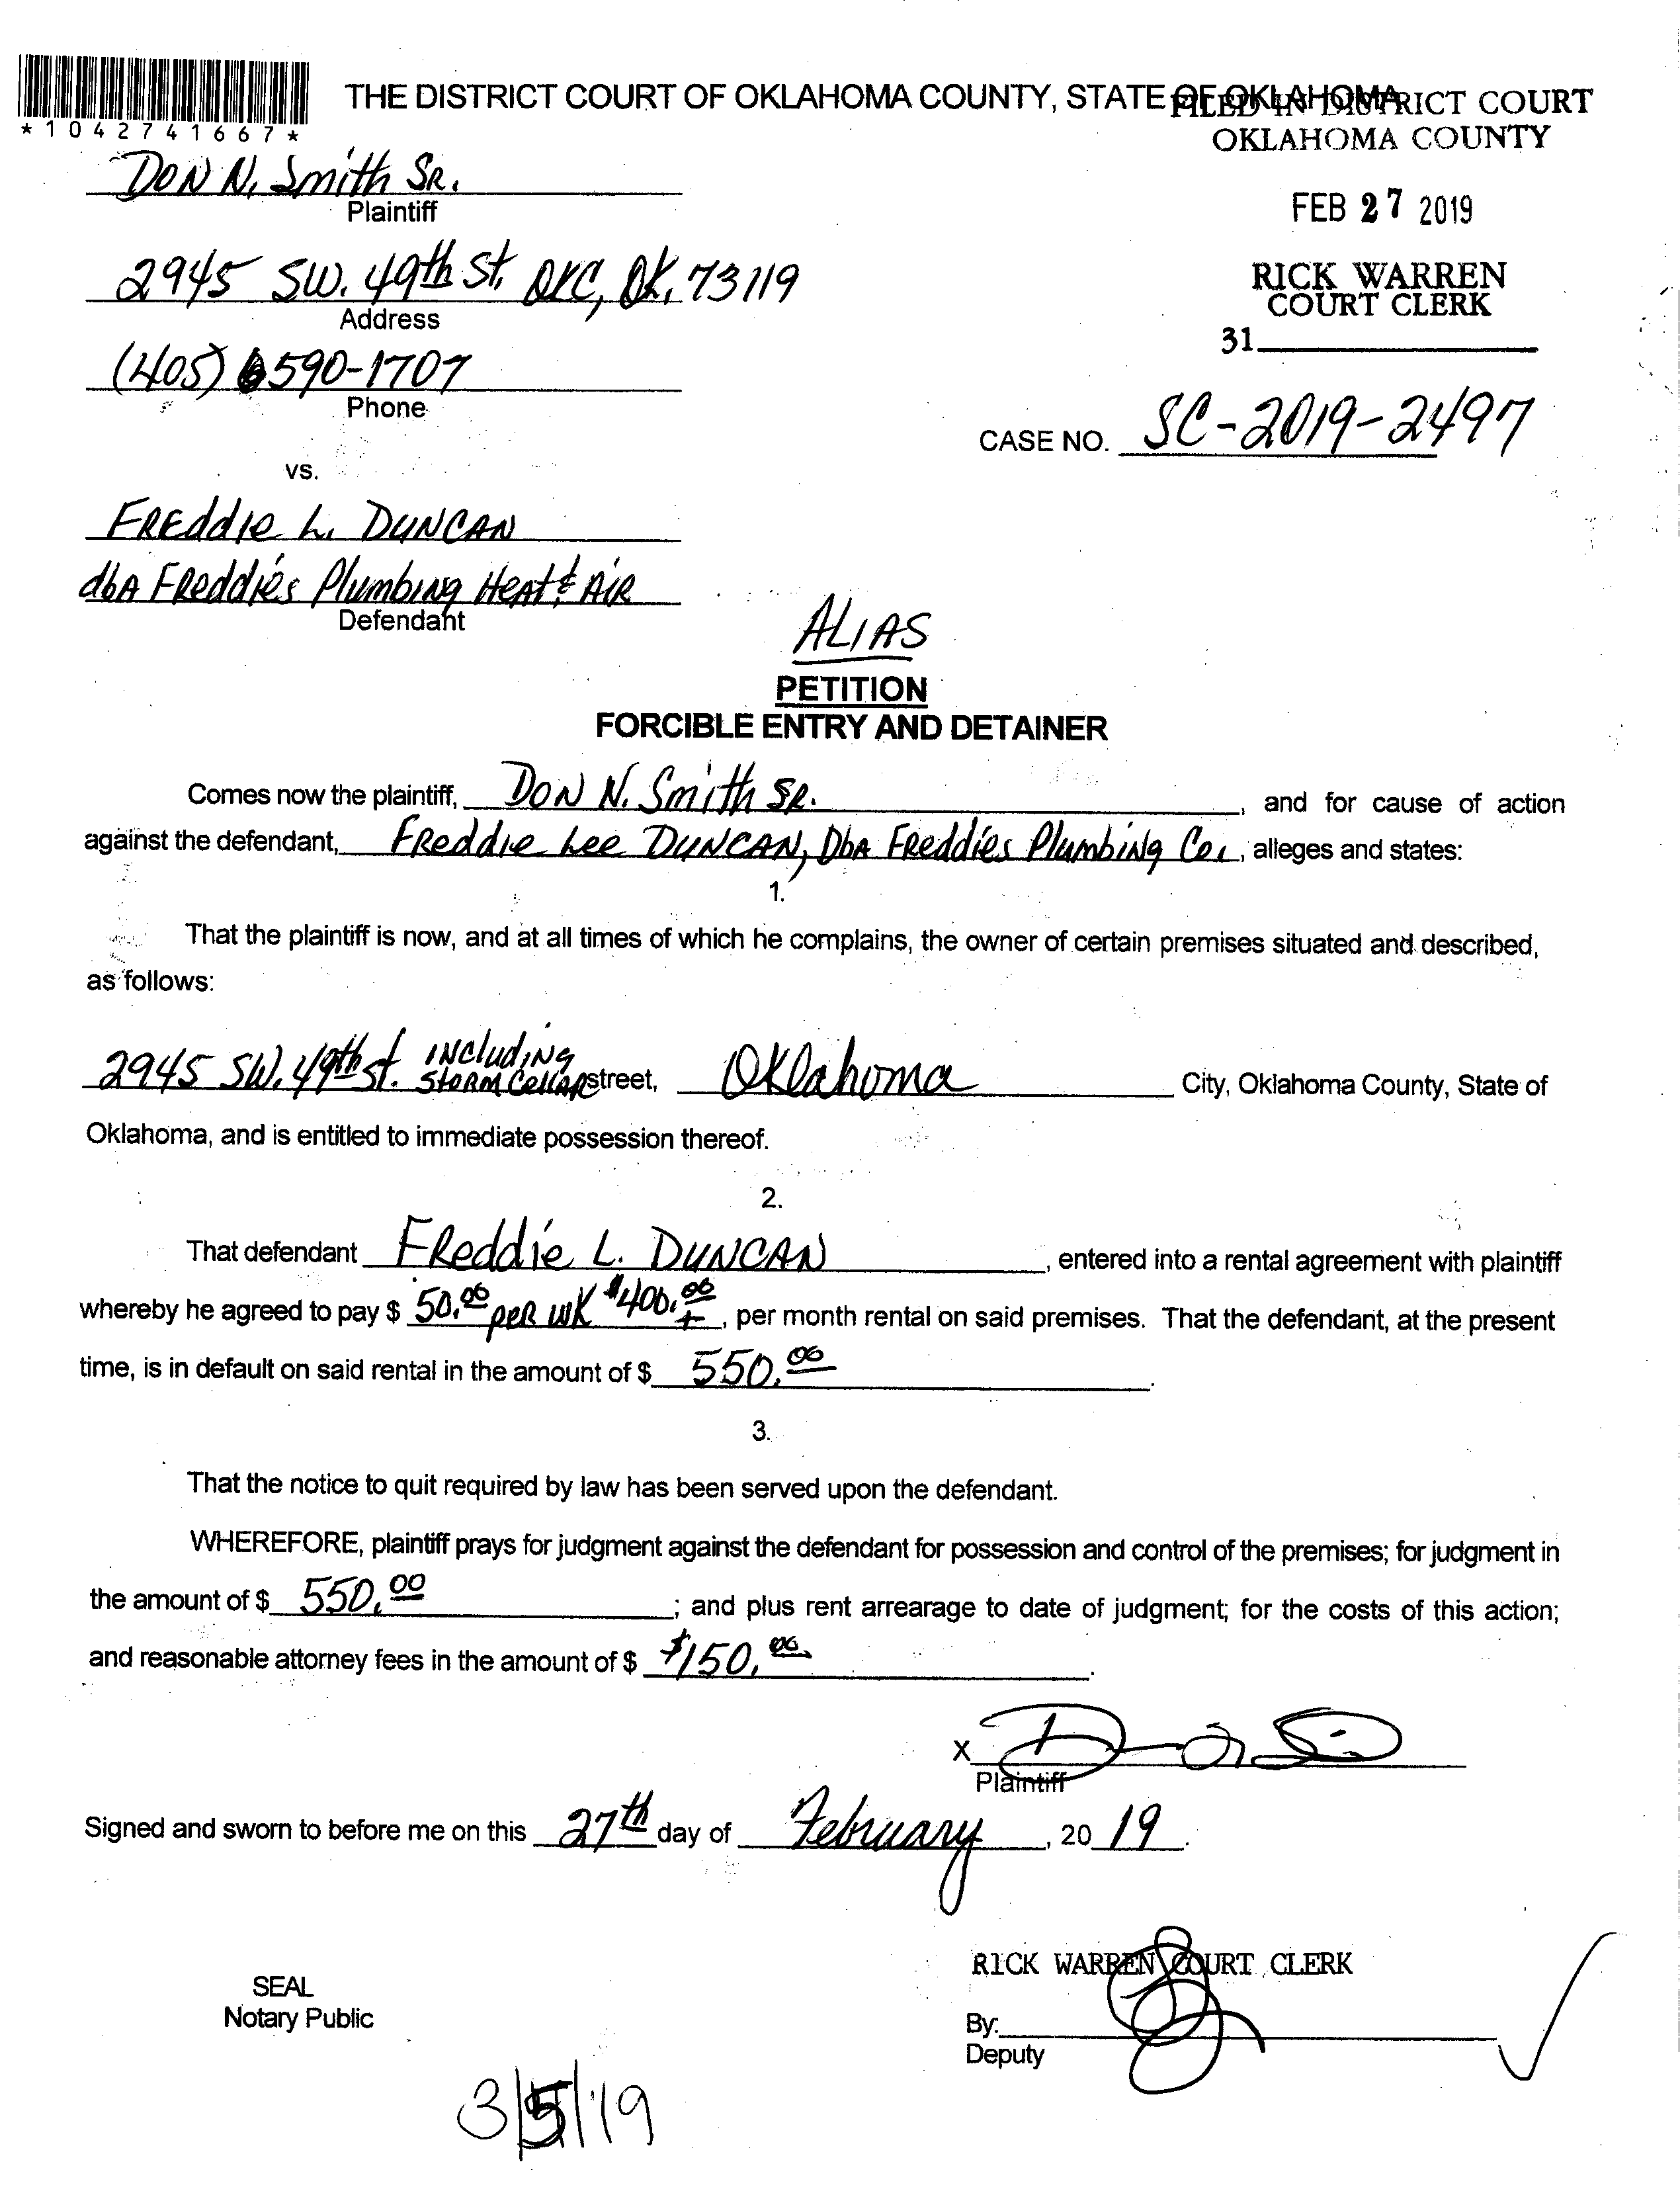 THE DISTRICT COURT OF OKLAHOMA COUNTY, STATE OF OKLAHOMA
FILED IN DISTRICT COURT
OKLAHOMA COUNTY
*1042741667*
DON N. Smith SR.
Plaintiff
FEB 27 2019
2945 SW. 49th St. OKC, OK. 73119
Address
RICK WARREN
COURT CLERK
31
(405) 590-1707
Phone
CASE NO. SC-2019-2497
vs.
FREddie L. DUNCAN
dbA FReddie's Plumbing HeAt & AiR
Defendant
ALIAS
PETITION
FORCIBLE ENTRY AND DETAINER
Comes now the plaintiff, DON N. Smith SR. , and for cause of action
against the defendant, FReddie Lee DUNCAN, DbA FReddies Plumbing Co. , alleges and states:
1.
That the plaintiff is now, and at all times of which he complains, the owner of certain premises situated and described,
as follows:
2945 SW. 49th St. INcludiNg StoRM CellAR street, Oklahoma City, Oklahoma County, State of
Oklahoma, and is entitled to immediate possession thereof.
2.
That defendant FReddie L. DUNCAN , entered into a rental agreement with plaintiff
whereby he agreed to pay $ 50.00 peR WK $400.00 + , per month rental on said premises. That the defendant, at the present
time, is in default on said rental in the amount of $ 550.00 .
3.
That the notice to quit required by law has been served upon the defendant.
WHEREFORE, plaintiff prays for judgment against the defendant for possession and control of the premises; for judgment in
the amount of $ 550.00 ; and plus rent arrearage to date of judgment; for the costs of this action;
and reasonable attorney fees in the amount of $ $150.00 .
X
Plaintiff
Signed and sworn to before me on this 27th day of February , 20 19 .
RICK WARREN COURT CLERK
SEAL
Notary Public
By:
Deputy
3/5/19